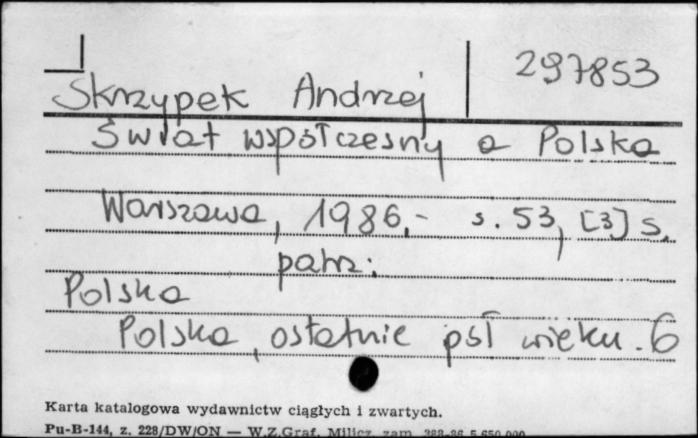 297853
Skrzypek Andrzej
Świat współczesny a Polska
Warszawa, 1986,- s. 53, [3] s.
patrz:
Polska
Polska, ostatnie pół wieku. 6
Karta katalogowa wydawnictw ciągłych i zwartych.
Pu-B-144, z. 228/DW/ON — W.Z.Graf. Milicz, zam.